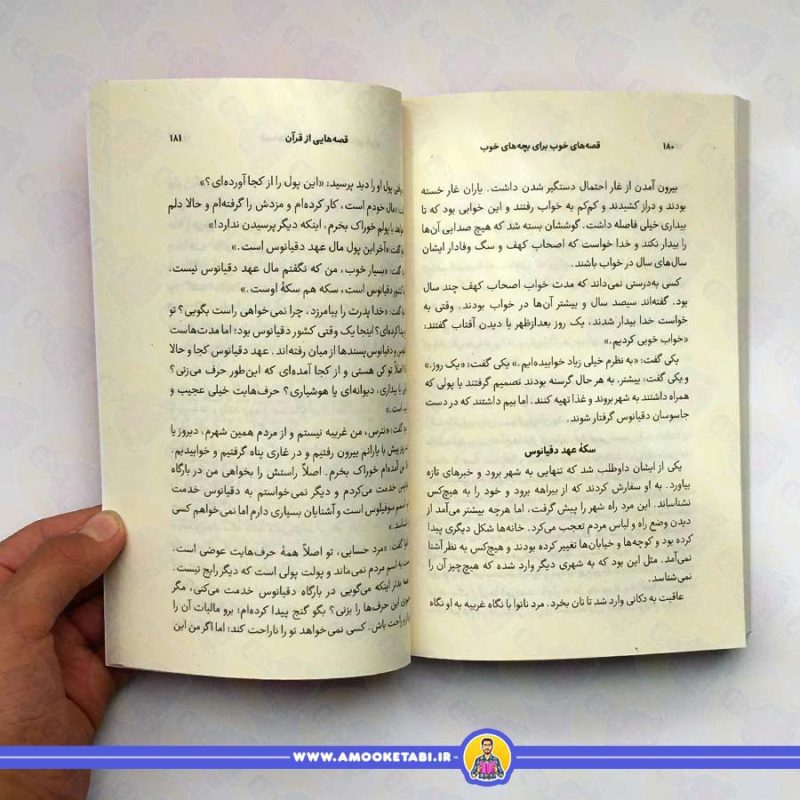 ۱۸۰ قصه‌های خوب برای بچه‌های خوب
بیرون آمدن از غار احتمال دستگیر شدن داشت. یاران غار خسته
بودند و دراز کشیدند و کم‌کم به خواب رفتند و این خوابی بود که تا
بیداری خیلی فاصله داشت. گوششان بسته شد که هیچ صدایی آن‌ها
را بیدار نکند و خدا خواست که اصحاب کهف و سگ وفادار ایشان
سال‌های سال در خواب باشند.
کسی به‌درستی نمی‌داند که مدت خواب اصحاب کهف چند سال
بود. گفته‌اند سیصد سال و بیشتر آن‌ها در خواب بودند. وقتی به
خواست خدا بیدار شدند، یک روز بعدازظهر با دیدن آفتاب گفتند:
«خواب خوبی کردیم.»
یکی گفت: «به نظرم خیلی زیاد خوابیده‌ایم.» یکی گفت: «یک روز.»
و یکی گفت: بیشتر. به هر حال گرسنه بودند تصمیم گرفتند با پولی که
همراه داشتند به شهر بروند و غذا تهیه کنند. اما بیم داشتند که در دست
جاسوسان دقیانوس گرفتار شوند.
سکهٔ عهد دقیانوس
یکی از ایشان داوطلب شد که تنهایی به شهر برود و خبرهای تازه
بیاورد. به او سفارش کردند که از بیراهه برود و خود را به هیچ‌کس
نشناساند. این مرد راه شهر را پیش گرفت، اما هرچه بیشتر می‌آمد از
دیدن وضع راه و لباس مردم تعجب می‌کرد. خانه‌ها شکل دیگری پیدا
کرده بود و کوچه‌ها و خیابان‌ها تغییر کرده بودند و هیچ‌کس به نظر آشنا
نمی‌آمد. مثل این بود که به شهری دیگر وارد شده که هیچ‌چیز آن را
نمی‌شناسد.
عاقبت به دکانی وارد شد تا نان بخرد. مرد نانوا با نگاه غریبه به او نگاه
قصه‌هایی از قرآن ۱۸۱
پول او را دید پرسید: «این پول را از کجا آورده‌ای؟»
«مال خودم است، کار کرده‌ام و مزدش را گرفته‌ام و حالا دلم
با پولم خوراک بخرم، اینکه دیگر پرسیدن ندارد!»
گفت: «آخر این پول مال عهد دقیانوس است.»
«بسیار خوب، من که نگفتم مال عهد دقیانوس نیست.
کشور دقیانوس است، سکه هم سکهٔ اوست.»
گفت: «خدا پدرت را بیامرزد، چرا نمی‌خواهی راست بگویی؟ تو
پیدا کرده‌ای؟ اینجا یک وقتی کشور دقیانوس بود؛ اما مدت‌هاست
و دقیانوس‌پسندها از میان رفته‌اند. عهد دقیانوس کجا و حالا
اصلاً تو کی هستی و از کجا آمده‌ای که این‌طور حرف می‌زنی؟
یا بیداری، دیوانه‌ای یا هوشیاری؟ حرف‌هایت خیلی عجیب و
است.»
گفت: «نترس، من غریبه نیستم و از مردم همین شهرم، دیروز یا
پیش با یارانم بیرون رفتیم و در غاری پناه گرفتیم و خوابیدیم.
من آمده‌ام خوراک بخرم. اصلاً راستش را بخواهی من در بارگاه
خدمت می‌کردم و دیگر نمی‌خواستم به دقیانوس خدمت
اسمم سوفیلوس است و آشنایان بسیاری دارم اما نمی‌خواهم کسی
گفت: «مرد حسابی، تو اصلاً همهٔ حرف‌هایت عوضی است.
به اسم مردم نمی‌ماند و پولت پولی است که دیگر رایج نیست.
بدتر اینکه می‌گویی در بارگاه دقیانوس خدمت می‌کنی، مگر
این حرف‌ها را بزنی؟ بگو گنج پیدا کرده‌ام؛ برو مالیات آن را
راحت باش. کسی نمی‌خواهد تو را ناراحت کند؛ اما اگر من این
WWW.AMOOKETABI.IR